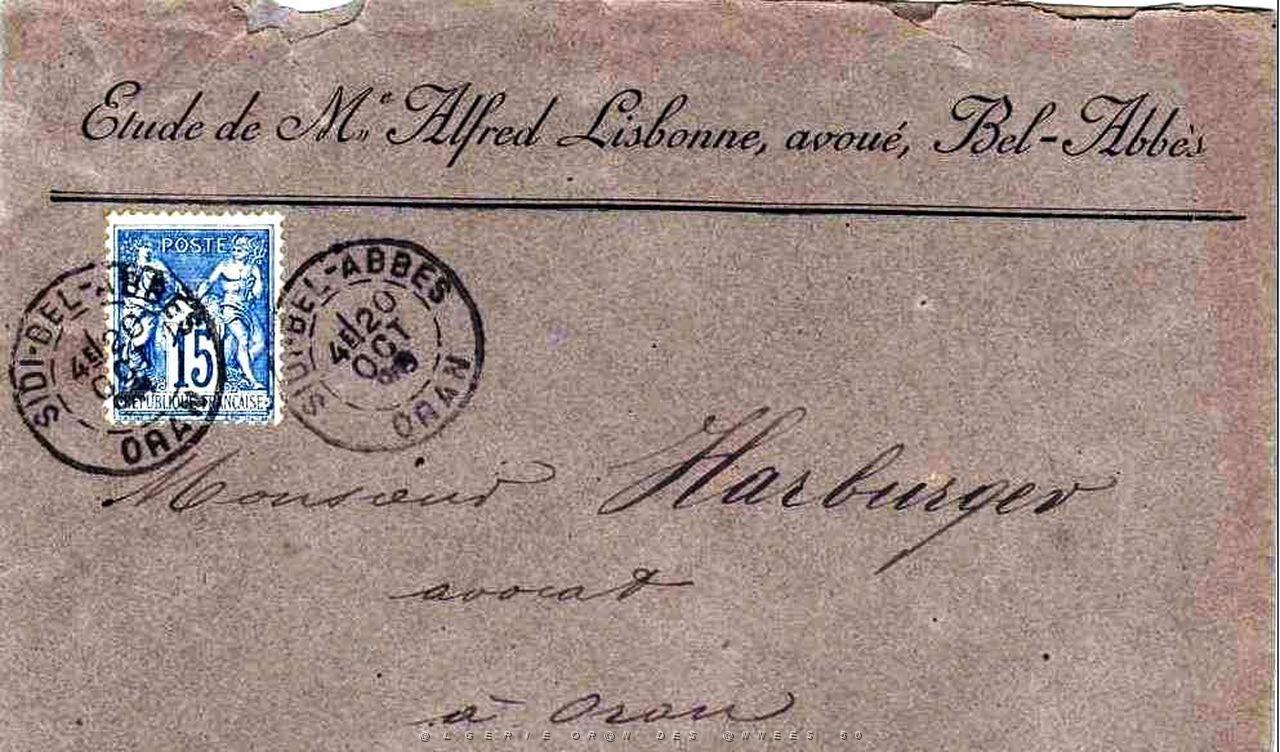 Etude de Mᵉ Alfred Lisbonne, avoué, Bel-Abbès
POSTE
15
REPUBLIQUE FRANÇAISE
SIDI-BEL-ABBES
4E/ 20
OCT
ORAN
SIDI-BEL-ABBES
4E/ 20
OCT
ORAN
Monsieur Harburger
avocat
à Oran
@LGERIE OR@N DES @NNEES 50